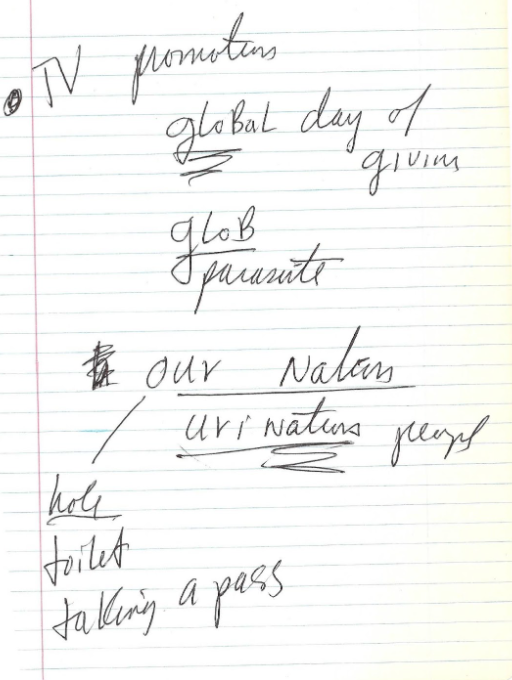 TV promotions
gLoBaL day of
giving
gLoB
parasite
our Nations
uriNations people
hole
toilet
taking a pass